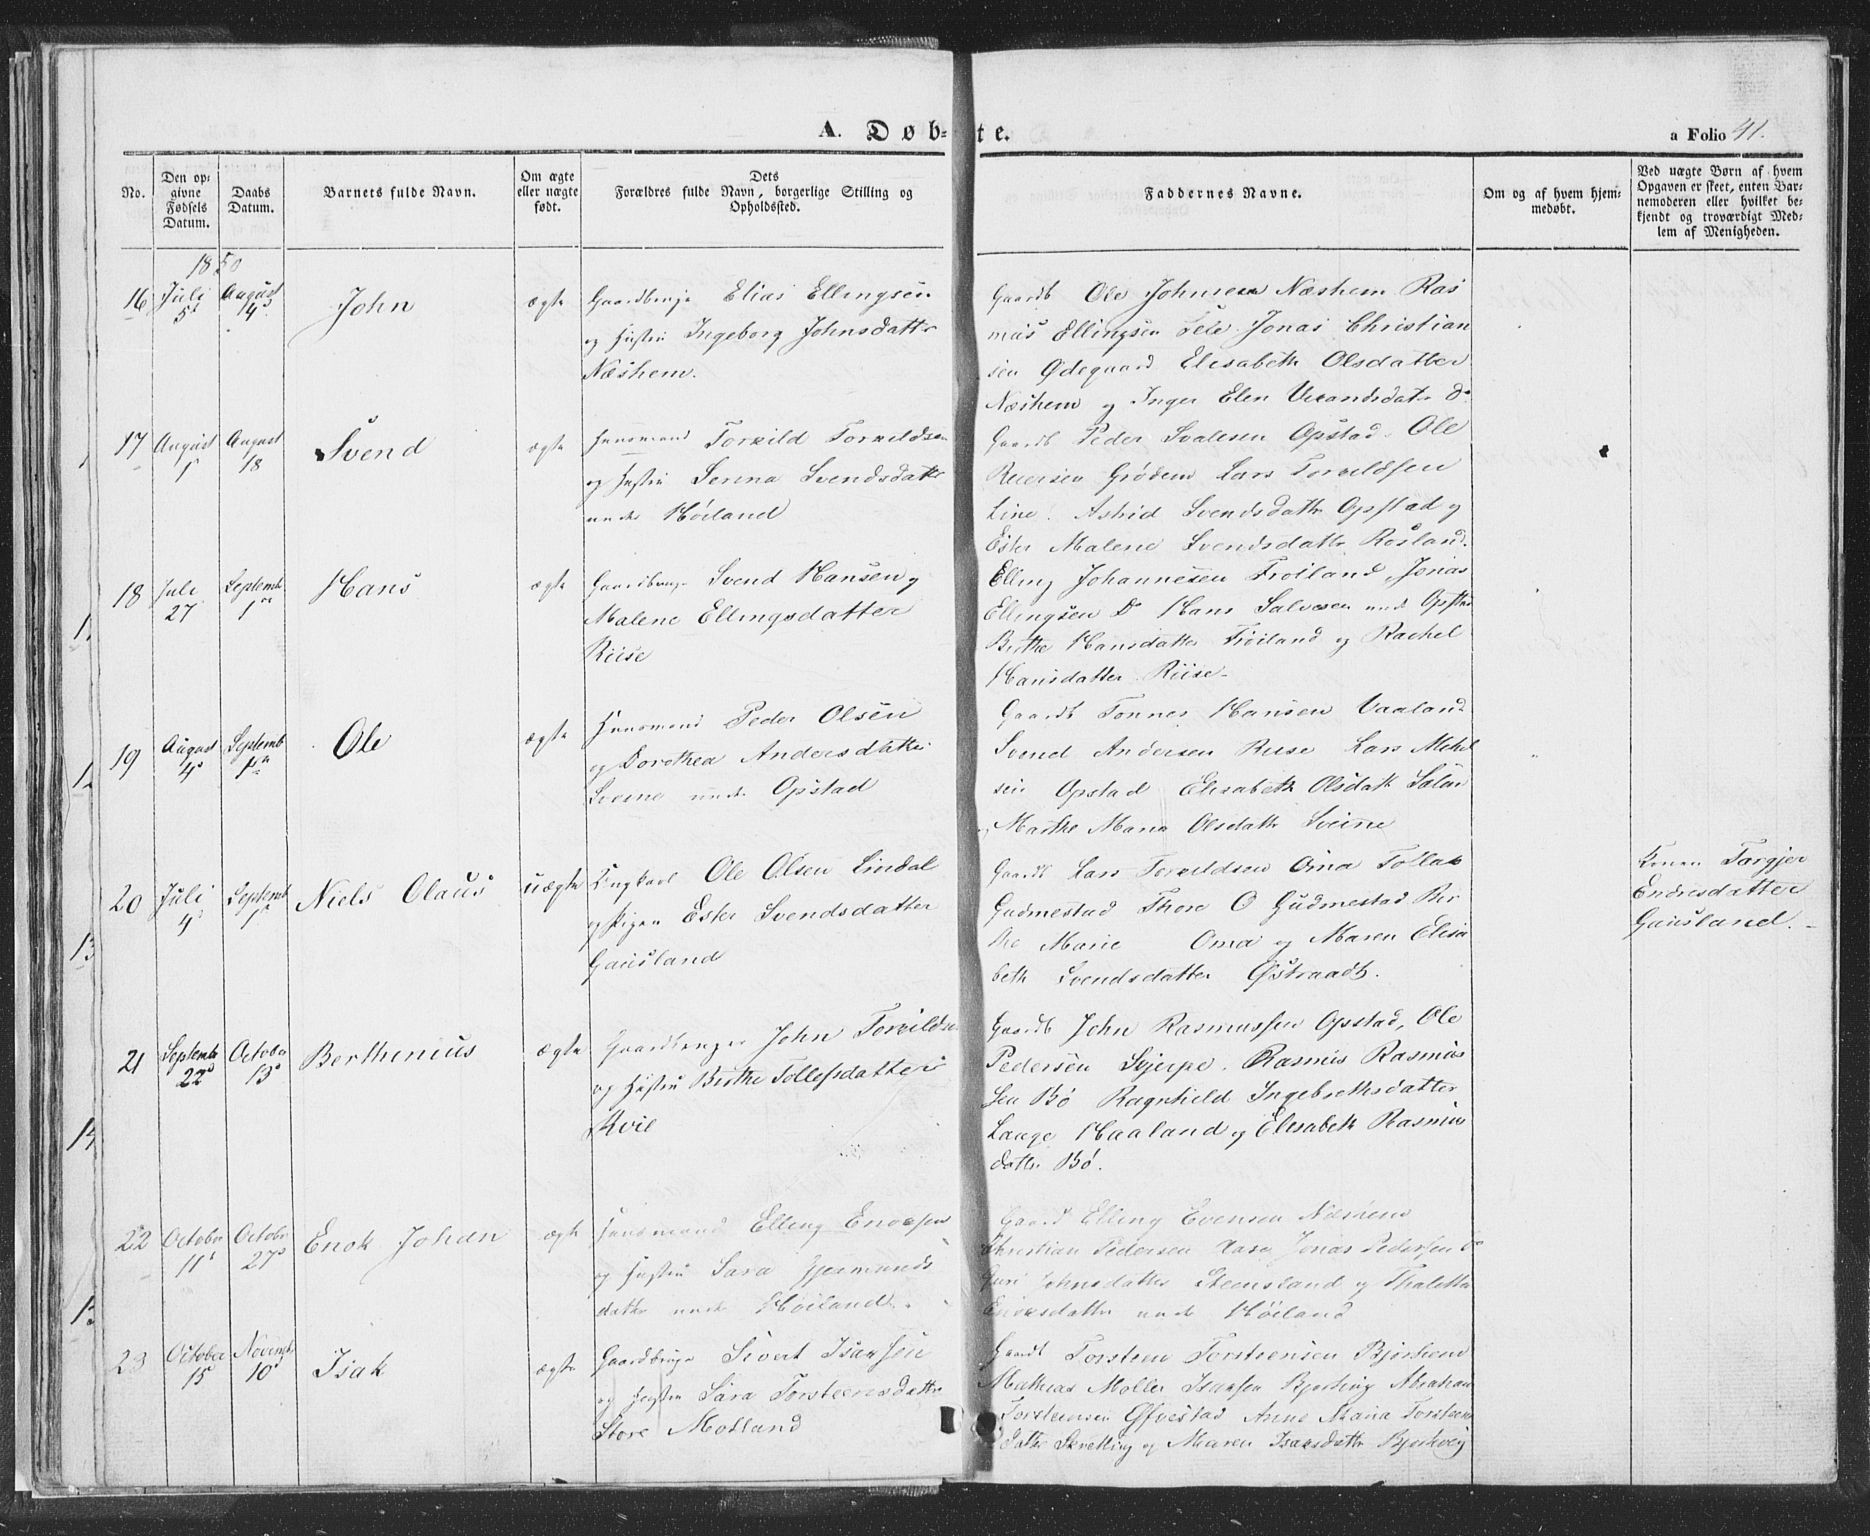 A. Døb-te.
a Folio 41.
No.
Den op-
givne
Fødsels
Datum.
Daabs
Datum.
Barnets fulde Navn.
Om ægte
eller uægte
født.
Dets
Forældres fulde Navn, borgerlige Stilling og
Opholdssted.
Faddernes Navne.
Om og af hvem hjem-
medøbt.
Ved uægte Børn af hvem
Opgaven er skeet, enten Bar-
nemoderen eller hvilket be-
kjendt og troværdigt Med-
lem af Menigheden.
1850
16 Juli 5 August 14 John ægte
Gaardbruger Elias Ellingsen
og Hustru Ingeborg Johnsdatter
Næshem.
Gaardb Ole Johnsen Næshem Ras
mus Ellingsen Sele Jonas Christian
sen Ødegaard Elisabeth Olsdatter
Næshem og Inger Elen Do
17 August 1 August 18 Svend ægte
Huusmand Torkild Torkildsen
og Hustru Serina Svendsdatter
under Høiland
Gaardb Peder Svalesen Opstad. Ole
Reiersen Grødem Lars Torkildsen
Line. Astrid Svendsdattr Opstad og
Ester Malene Svendsdattr Rosland.
18 Juli 27 Septembr 1 Hans ægte
Gaardbruger Svend Hansen og
Malene Ellingsdatter
Riise
Elling Johannesen Frøiland, Jonas
Ellingsen Do Hans Salvesen under Opstad
Berthe Hansdatter Frøiland og Rachel
Hansdatter Riise
19 August 4 Septembr 1 Ole ægte
Huusmand Peder Olsen
og Dorothea Andersdatter
Sveine under Opstad
Gaardb Tonnes Hansen Vaaland
Svend Andersen Riise Lars Mikel
sen Opstad Elisabeth Olsdattr
Marthe Maria Olsdattr Sveine
20 Juli 4 Septembr 1 Niels Olaus uægte
Ungkarl Ole Olsen Lindal
og Pigen Ester Svendsdatter
Gausland
Gaardb Lars Torkildsen Oma Tollak
Gudmestad Thore O Gudmestad Ber
the Marie Oma og Maren Elisa
beth Svendsdatter Østraadt.
Konen Torgjer
Endresdatter
Gausland.
21 Septembr 22 October 13 Berthinius ægte
Gaardbruger John Torkildsen
og Hustru Berthe Tollefsdatter
Kvie
Gaardb John Rasmussen Opstad, Ole
Pedersen Skjerpe. Rasmus Rasmus
sen Bø Ragnhild Ingebretsdatter
Lauge Haaland og Elisabeth Rasmus
dattr Bø.
22 October 11 October 27 Enok Johan ægte
Huusmand Elling Enoksen
og Hustru Sara Gjermunds
dattr under Høiland.
Gaardb Elling Evensen Næshem
Christian Pedersen Aase Jonas Pedersen do
Guri Johnsdatter Steensland og Thaletta
Enoksdattr under Høiland
23 October 15 Novembr 10 Isak ægte
Gaardbruger Sivert Isaksen
og Hustru Sara Torsteensdattr
Store Motland
Gaardb Torsteen Torsteensen Bjorhem
Mathias Moller Isaksen Abraham
Torsteensen Øfvestad Anne Maria Torsteens
datter Skretting og Maren Isaksdattr